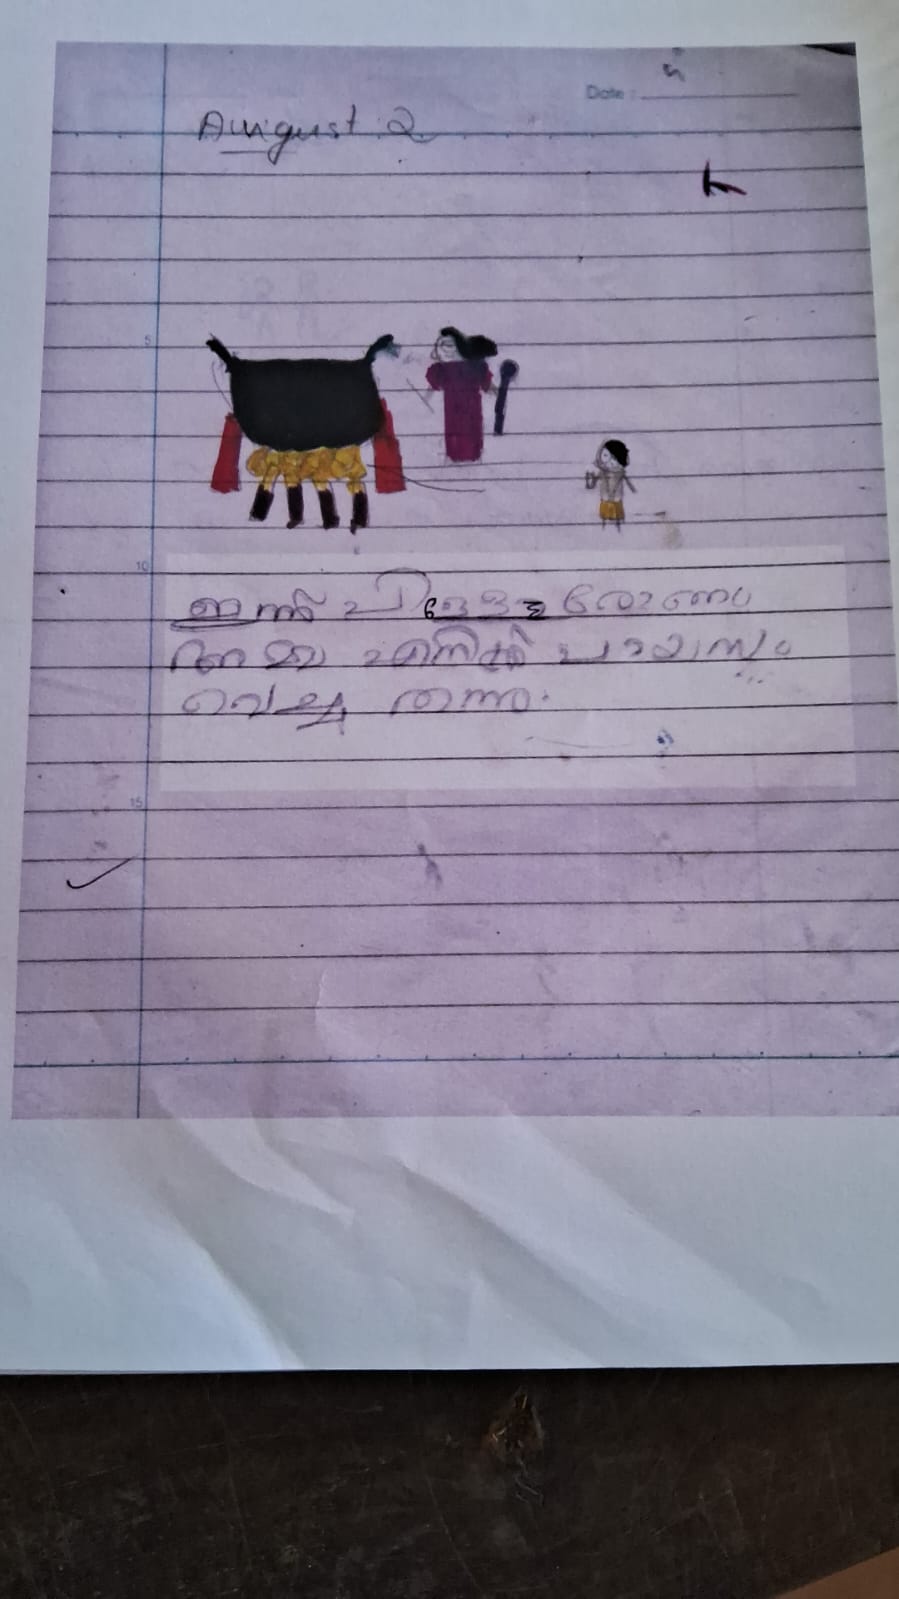 Date :
August 2
5
ഇന്ന് പിള്ളേരോണം
അമ്മ എനിക്ക് പായസം
വെച്ചു തന്നു.
10
15